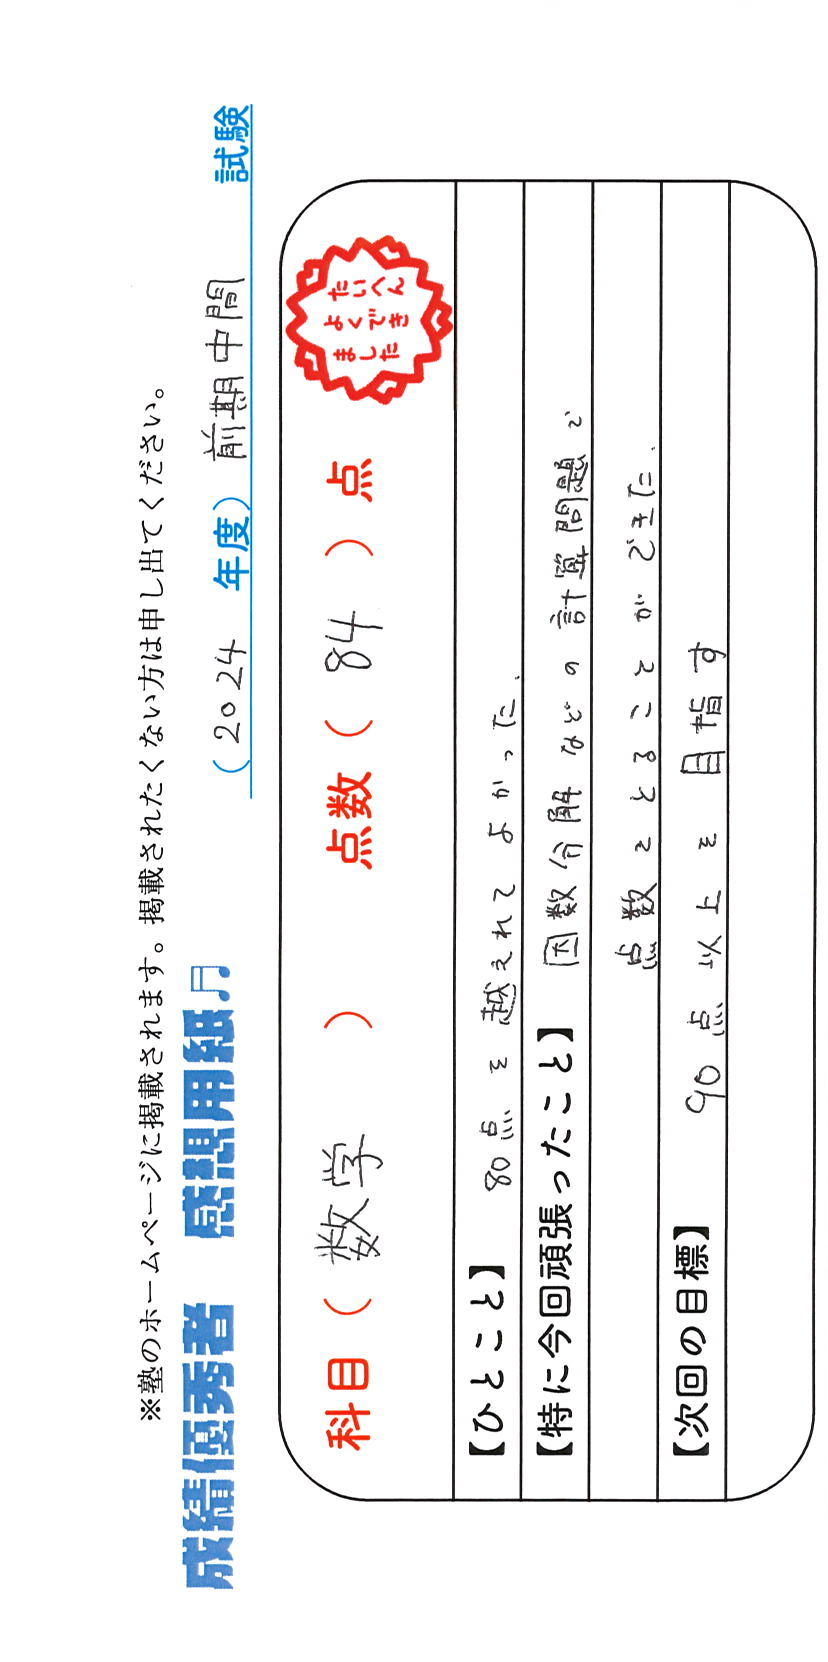 ※塾のホームページに掲載されます。掲載されたくない方は申し出てください。
成績優秀者 感想用紙♬ (2024 年度) 前期中間 試験
科目 ( 数学 ) 点数 ( 84 ) 点
たいへん
よくでき
ました
【ひとこと】 80点を越えれてよかった.
【特に今回頑張ったこと】 因数分解などの計算問題で
点数をとることができた.
【次回の目標】 90点以上を目指す